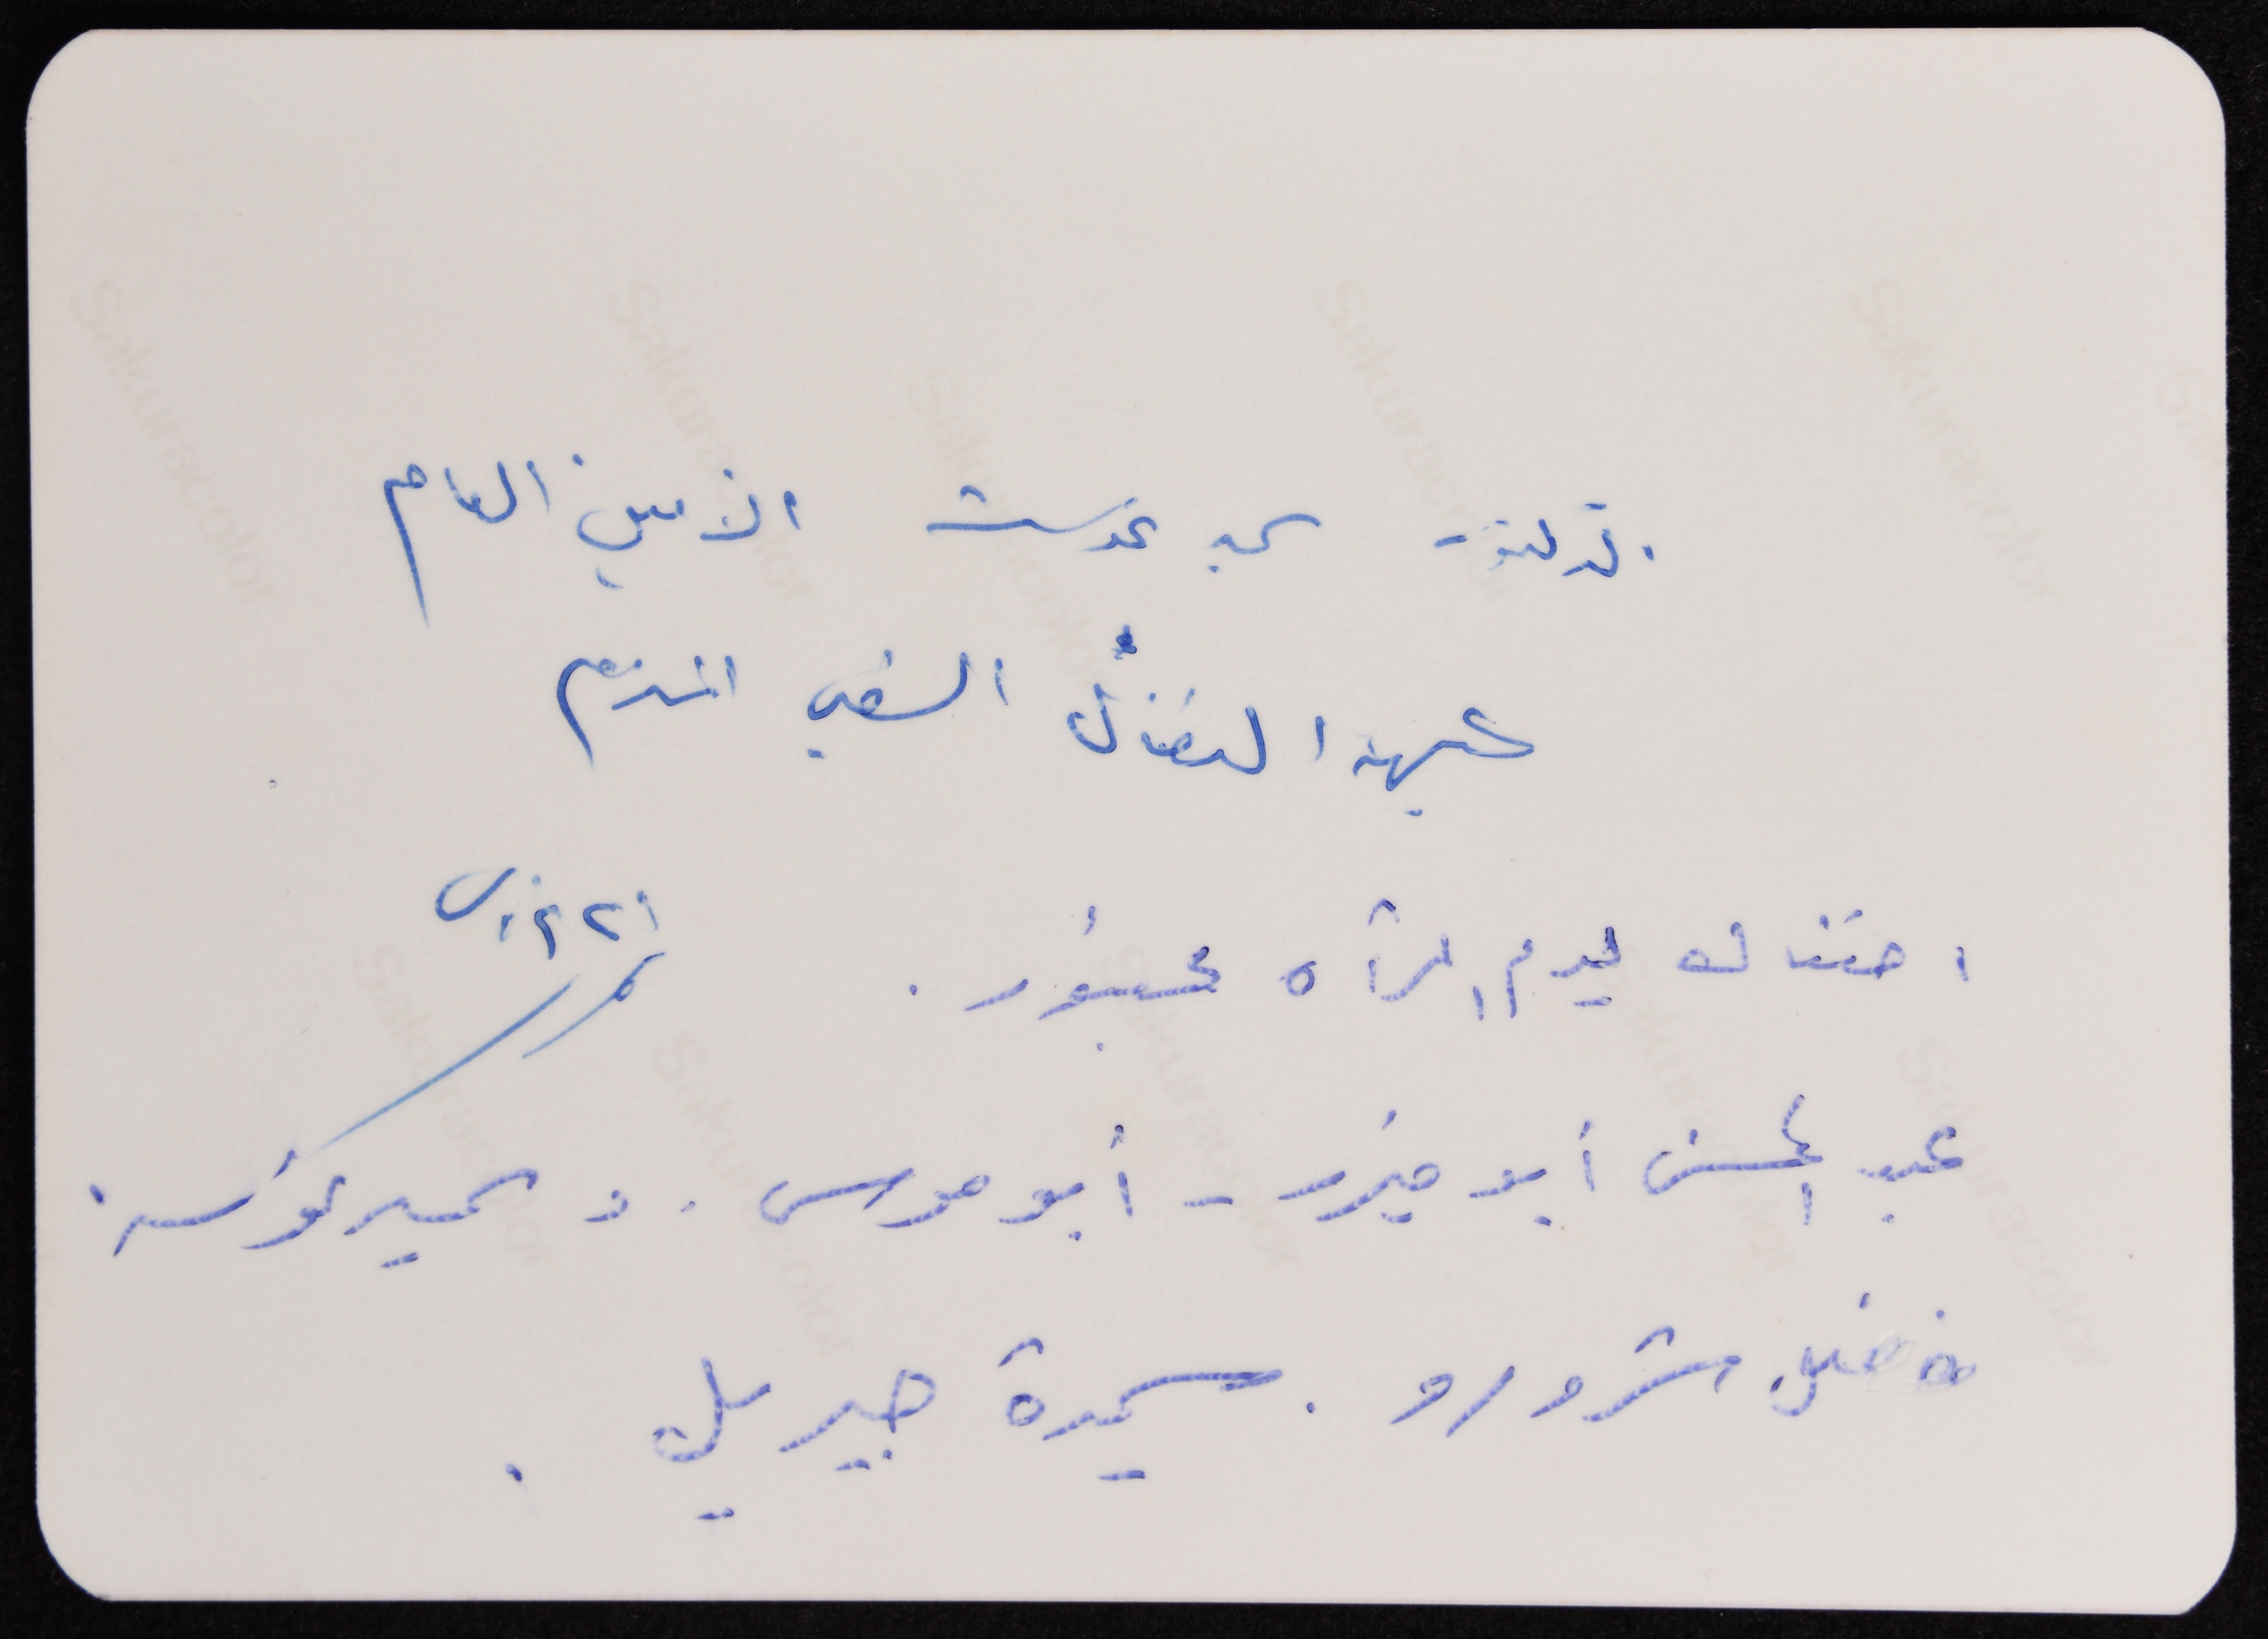 الدكتور سمير غوشة الأمين العام
جبهة النضال الشعبي
احتفال يوم المرأة بحضور .
عبد المحسن أبو ميزر - أبو موسى . د سمير غوشة .
فضل شرورو . سميرة جبريل .
Sakuracolor